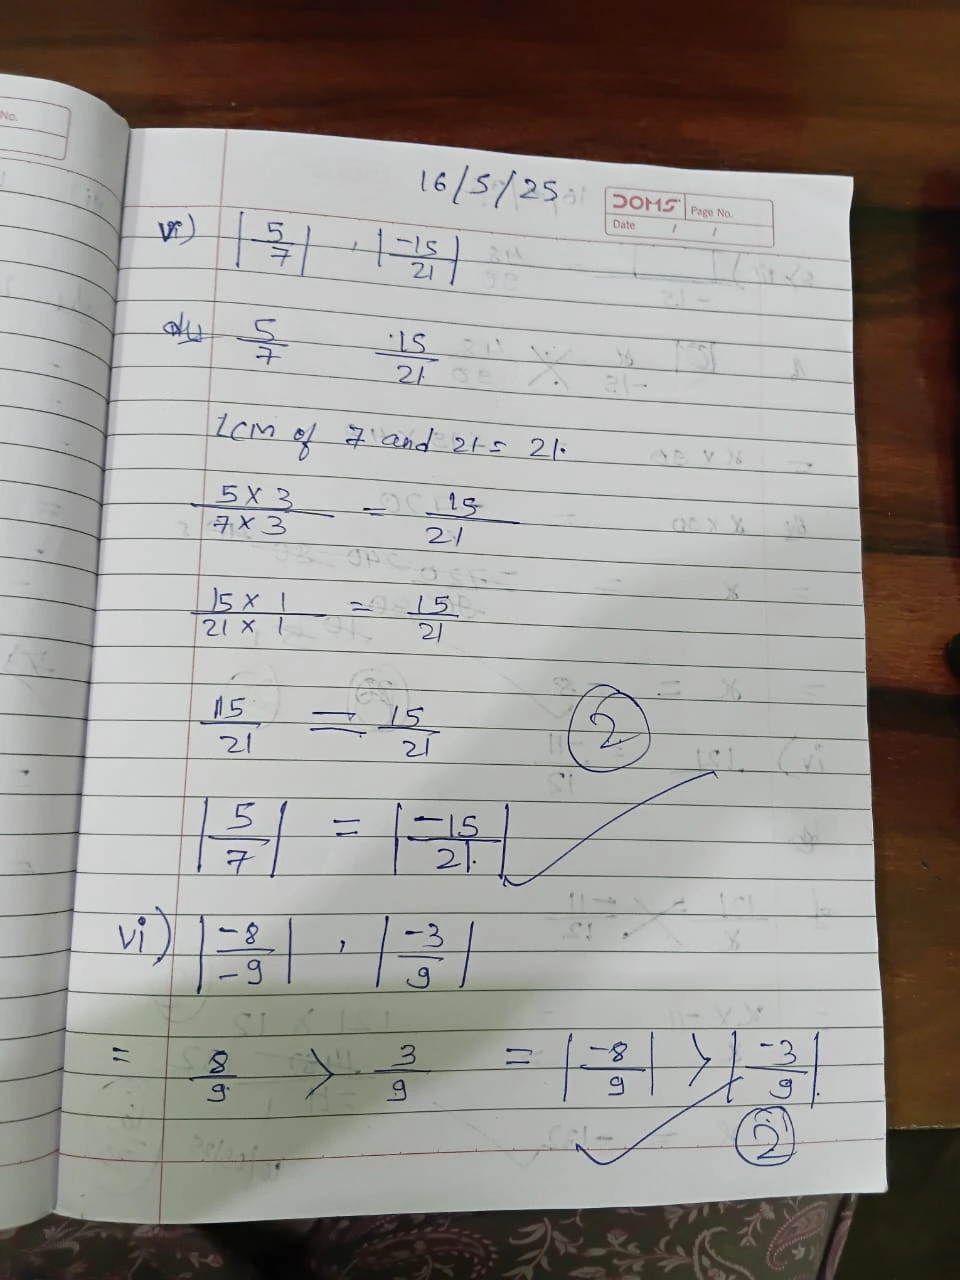 No.
16/5/25
DOMS Page No.
Date / /
vi) |5/7| , |-15/21|
5/7 15/21
LCM of 7 and 21 = 21.
5 x 3 / 7 x 3 = 15/21
15 x 1 / 21 x 1 = 15/21
15/21 = 15/21
2
|5/7| = |-15/21|
vi) |-8/-9| , |-3/9|
= 8/9 > 3/9 = |-8/9| > |-3/9|
2